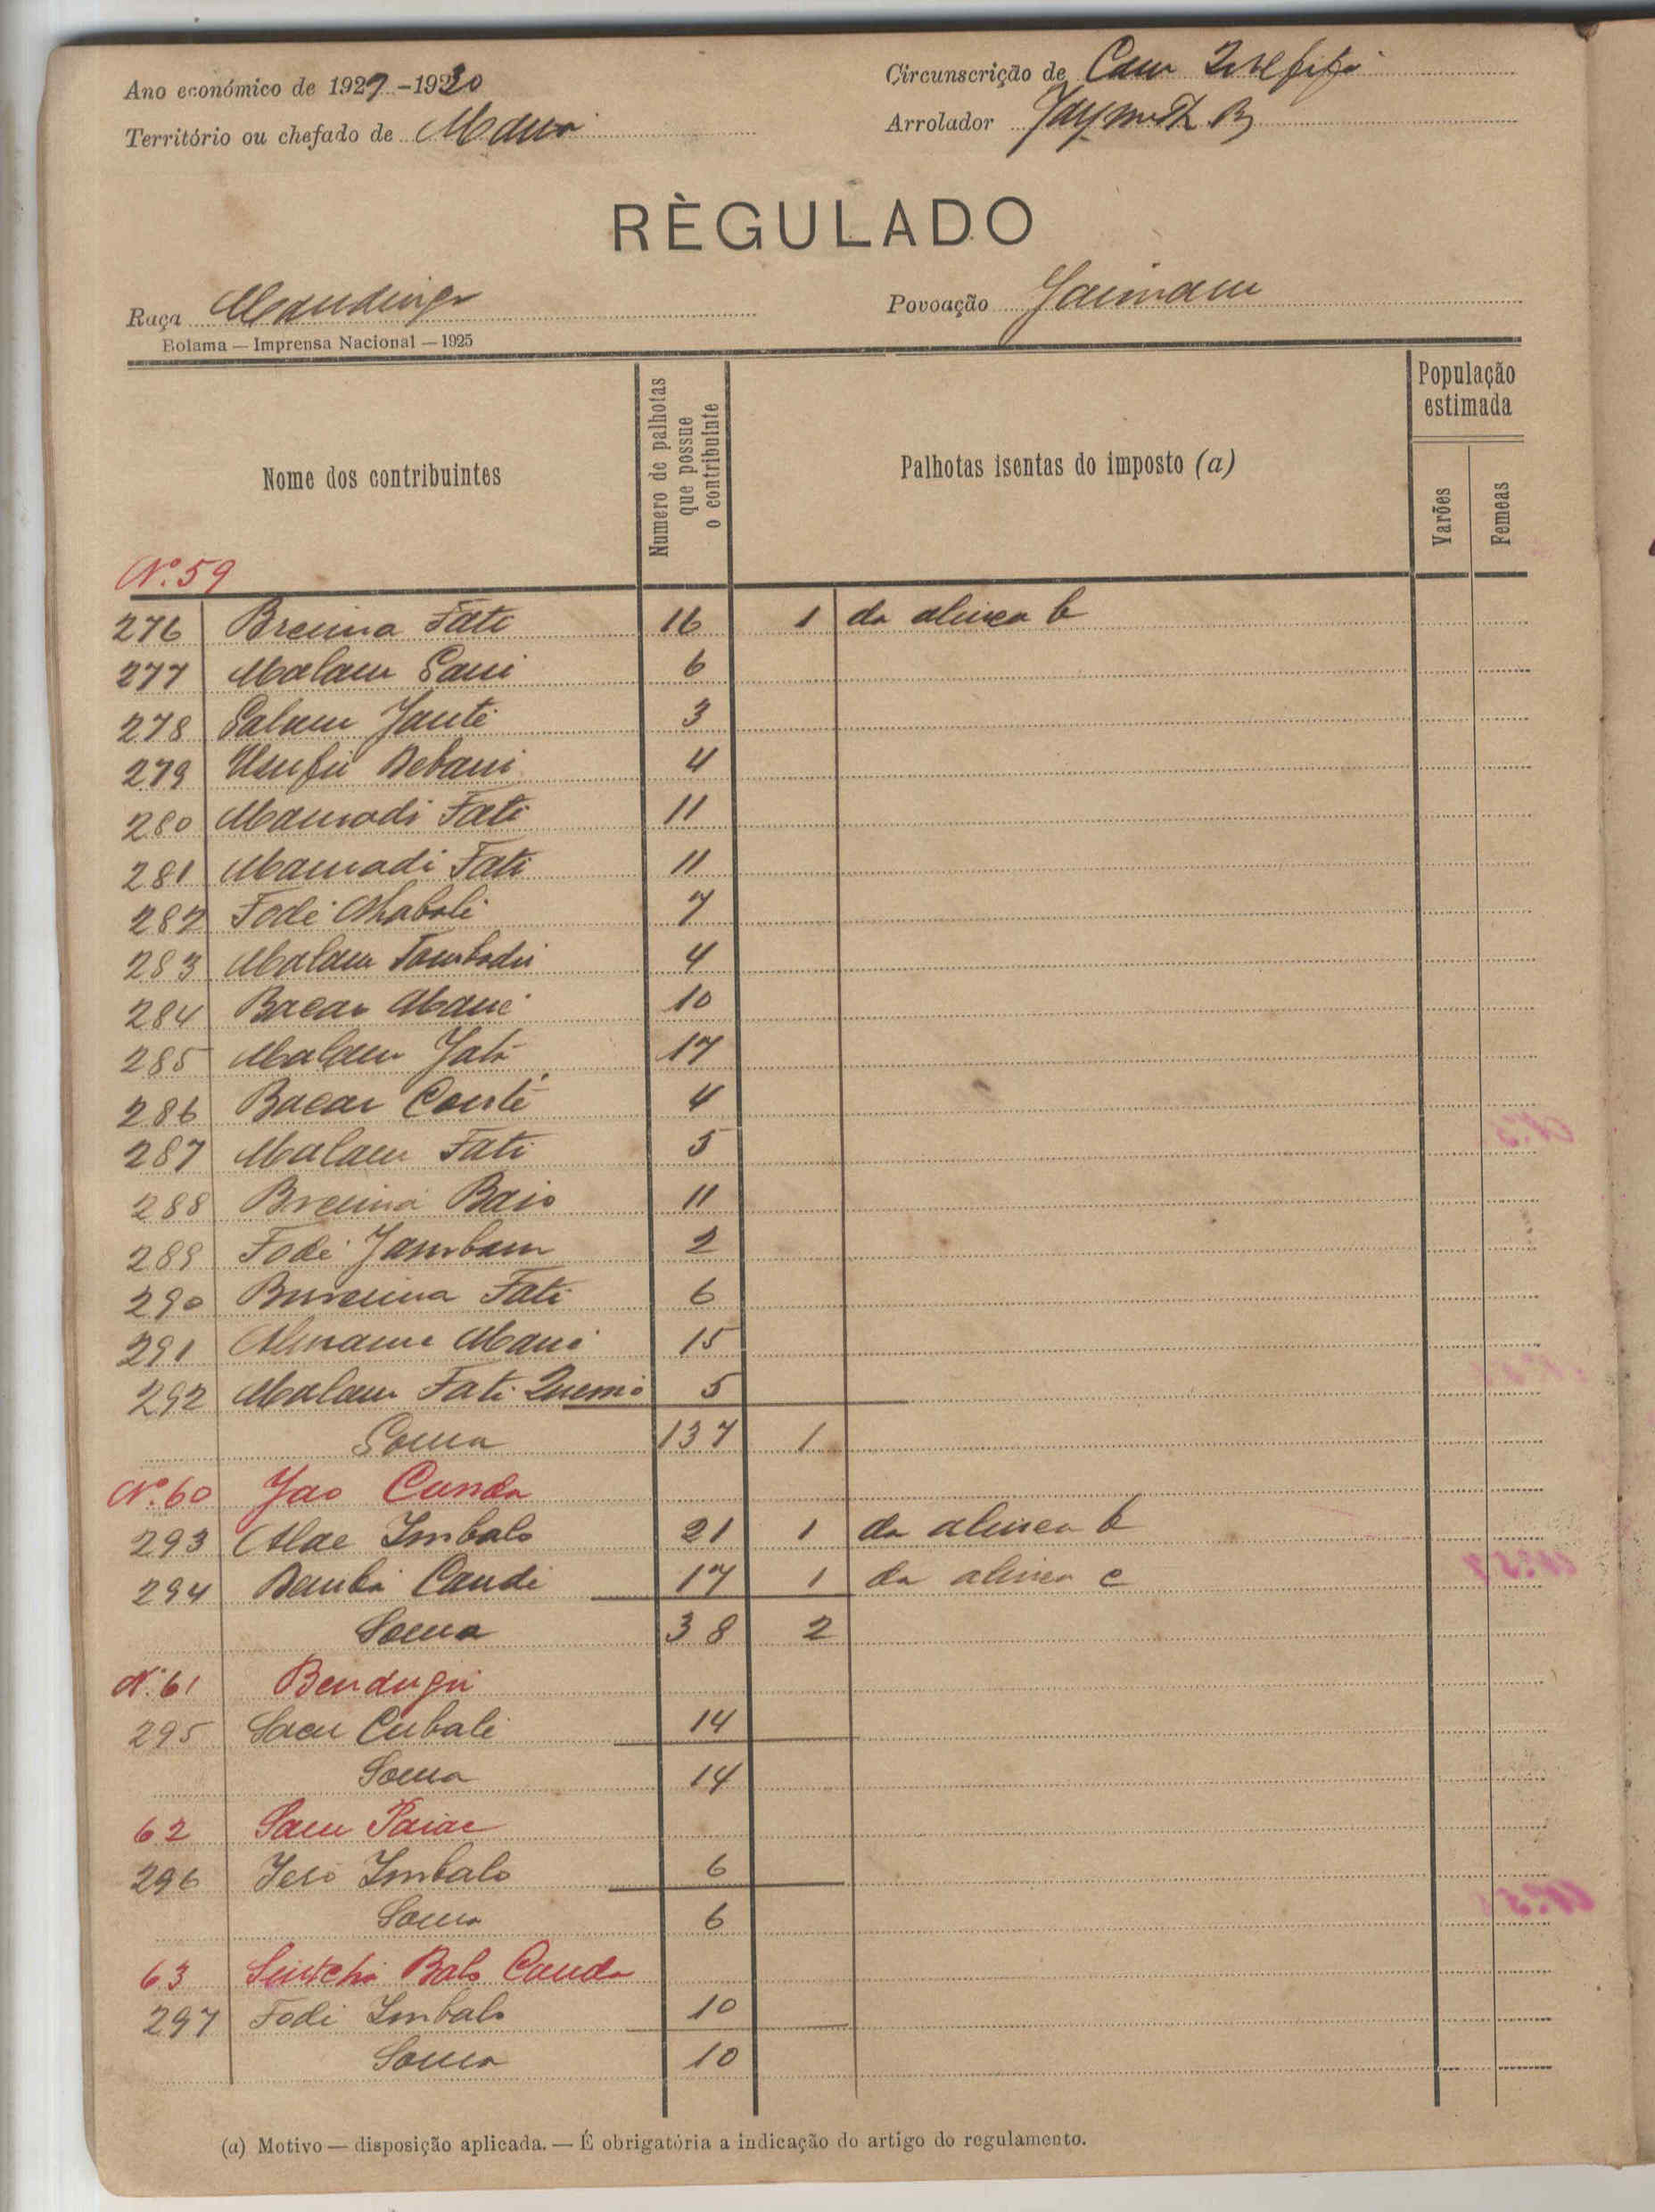 Ano económico de 1929-1930
Circunscrição de
Território ou chefado de Mansa
Arrolador
RÈGULADO
Raça Mandinga
Povoação
Bolama — Imprensa Nacional — 1925
Nome dos contribuintes
Numero de palhotas que possue o contribuinte
Palhotas isentas do imposto (a)
População estimada
Varões
Femeas
Nº 59
276 Breima Fati 16 1 da alinea b
277 Malam Sani 6
278 Salam Janté 3
279 Usufu Debani 4
280 Mamadi Fati 11
281 Mamadi Fati 11
282 Fodé 7
283 Malam 4
284 Bacar Mané 10
285 Malam Jatí 17
286 Bacar Conté 4
287 Malam Fati 5
288 Breima Baio 11
289 Fodé Jambam 2
290 Bureima Fati 6
291 Almame Mané 15
292 Malam Fati Quemó 5
Soma 137 1
Nº 60 Jao Cunda
293 Alae Imbalo 21 1 da alinea b
294 Demba Candé 17 1 da alinea c
Soma 38 2
Nº 61 Bendugu
295 Sacu Cubali 14
Soma 14
62 Sam Paiae
296 Jeró Imbalo 6
Soma 6
63 Sintchã Balo Cunda
297 Fodi Imbalo 10
Soma 10
(a) Motivo — disposição aplicada. — É obrigatória a indicação do artigo do regulamento.